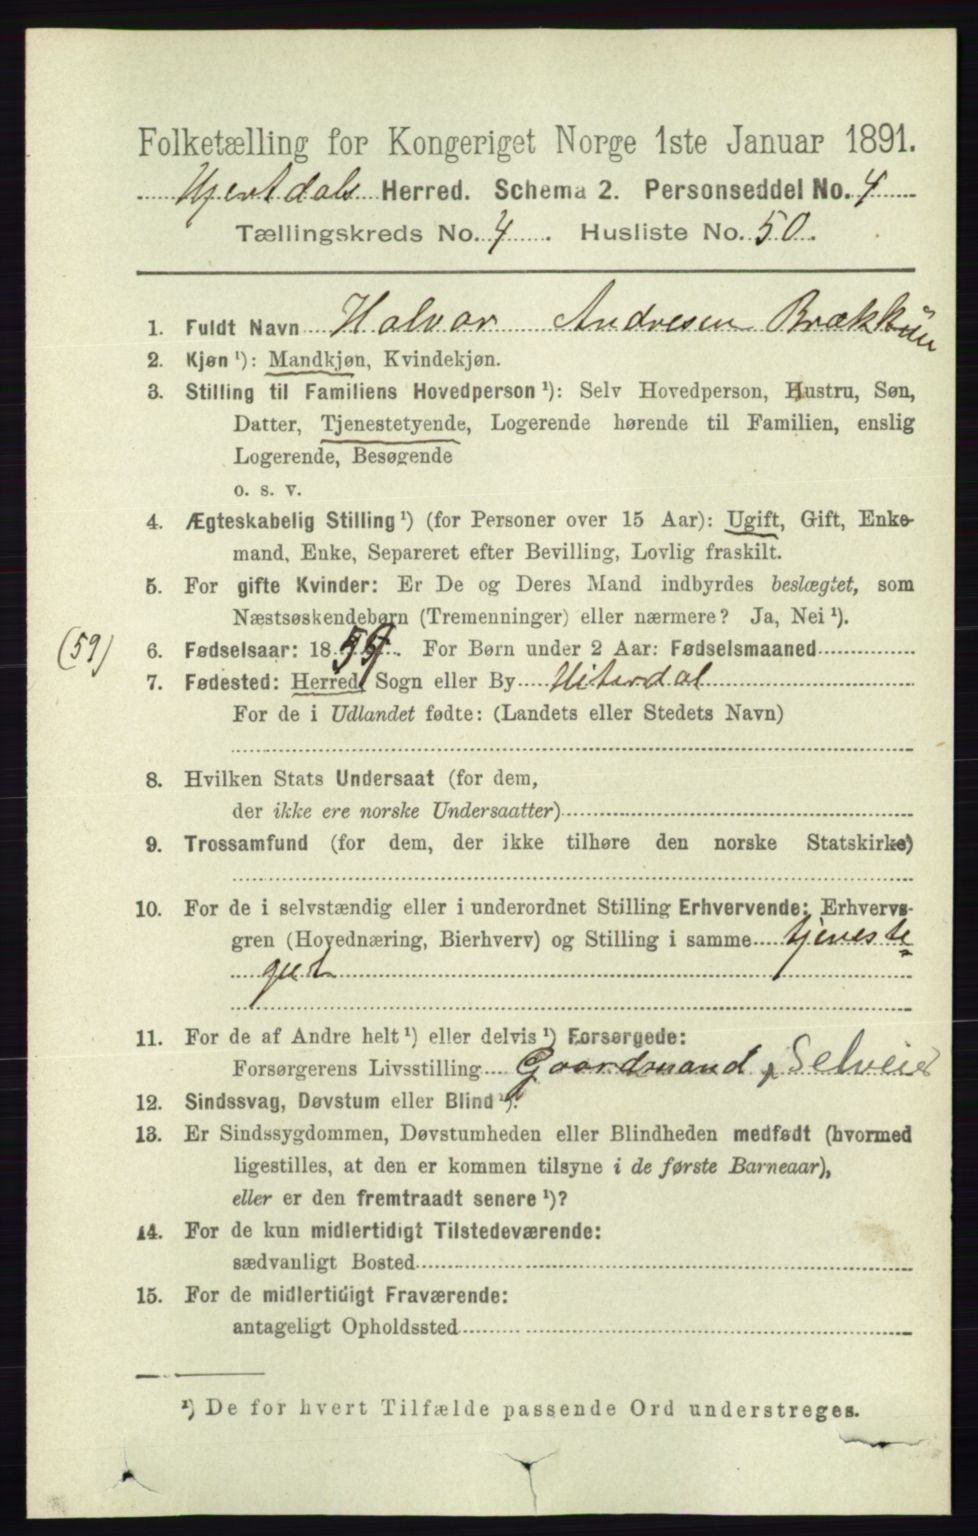 Folketælling for Kongeriget Norge 1ste Januar 1891.
Hjertdals Herred. Schema 2. Personseddel No. 4
Tællingskreds No. 4. Husliste No. 50.
1. Fuldt Navn Halvor Andresen Brækk
2. Kjøn ¹): Mandkjøn, Kvindekjøn.
3. Stilling til Familiens Hovedperson ¹): Selv Hovedperson, Hustru, Søn,
Datter, Tjenestetyende, Logerende hørende til Familien, enslig
Logerende, Besøgende
o. s. v.
4. Ægteskabelig Stilling ¹) (for Personer over 15 Aar): Ugift, Gift, Enke-
mand, Enke, Separeret efter Bevilling, Lovlig fraskilt.
5. For gifte Kvinder: Er De og Deres Mand indbyrdes beslægtet, som
Næstsøskendebørn (Tremenninger) eller nærmere? Ja, Nei ¹).
(59) 6. Fødselsaar: 1859. For Børn under 2 Aar: Fødselsmaaned
7. Fødested: Herred, Sogn eller By Hiterdal
For de i Udlandet fødte: (Landets eller Stedets Navn)
8. Hvilken Stats Undersaat (for dem,
der ikke ere norske Undersaatter)
9. Trossamfund (for dem, der ikke tilhøre den norske Statskirke)
10. For de i selvstændig eller i underordnet Stilling Erhvervende: Erhvervs-
gren (Hovednæring, Bierhverv) og Stilling i samme tjeneste=
gut
11. For de af Andre helt ¹) eller delvis ¹) Forsørgede:
Forsørgerens Livsstilling Gaardmand, Selveier
12. Sindssvag, Døvstum eller Blind ¹).
13. Er Sindssygdommen, Døvstumheden eller Blindheden medfødt (hvormed
ligestilles, at den er kommen tilsyne i de første Barneaar),
eller er den fremtraadt senere ¹)?
14. For de kun midlertidigt Tilstedeværende:
sædvanligt Bosted
15. For de midlertidigt Fraværende:
antageligt Opholdssted
¹) De for hvert Tilfælde passende Ord understreges.